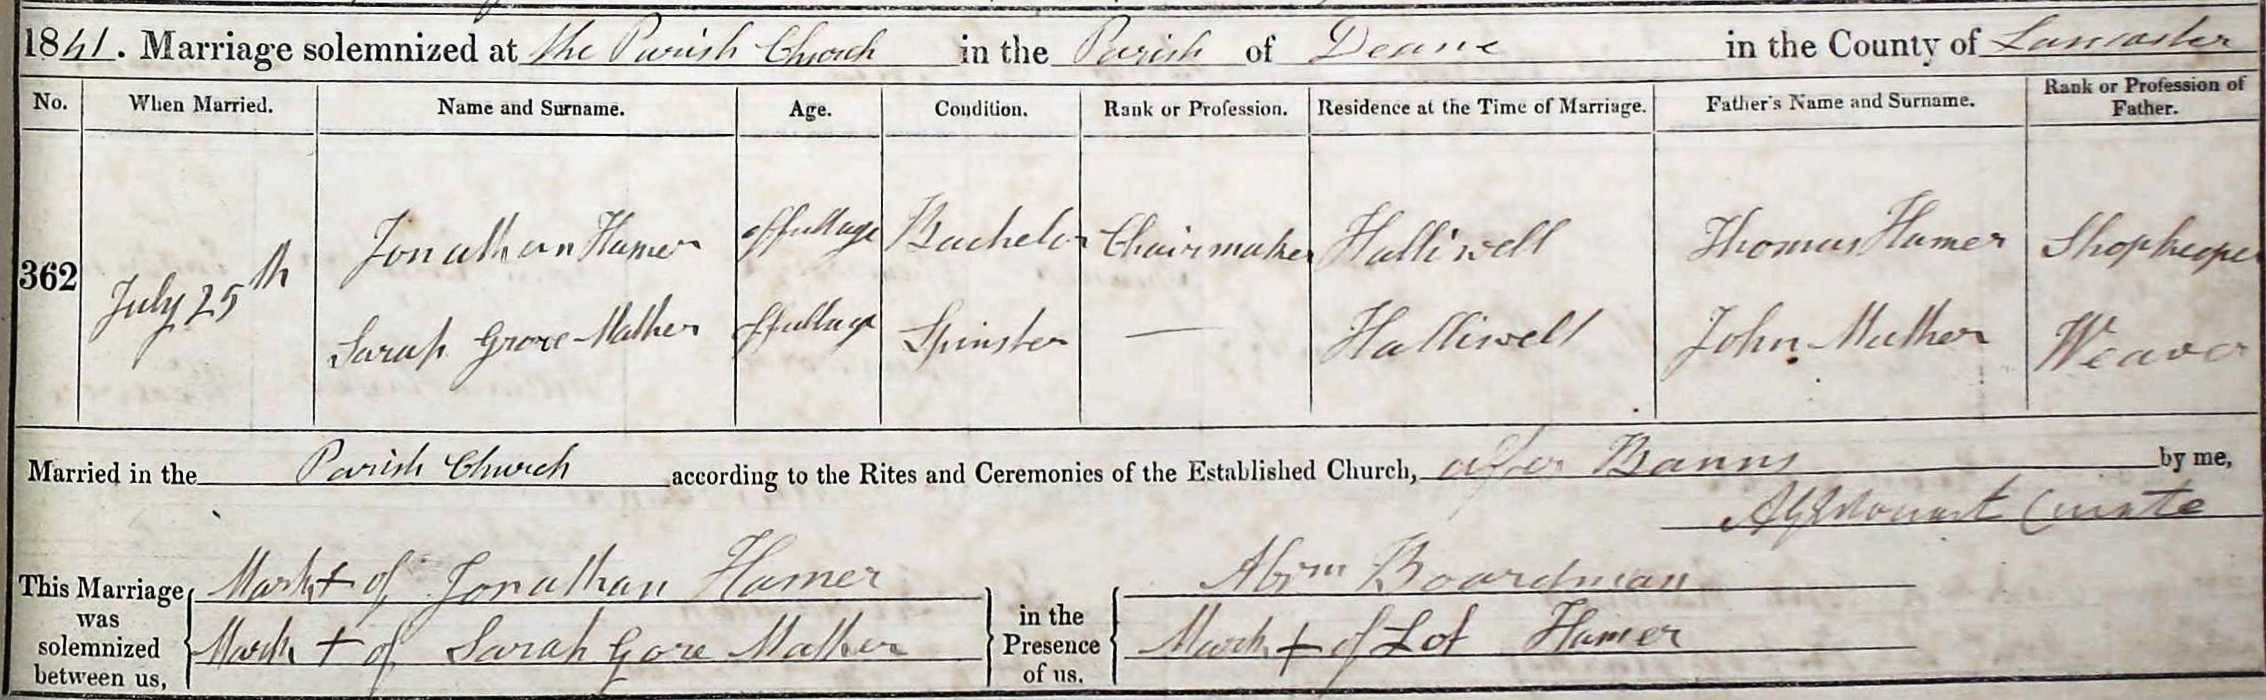 1841. Marriage solemnized at the Parish Church in the Parish of Deane in the County of Lancaster
No. When Married. Name and Surname. Age. Condition. Rank or Profession. Residence at the Time of Marriage. Father's Name and Surname. Rank or Profession of Father.
362 July 25th
Jonathan Hamer of full age Bachelor Chairmaker Halliwell Thomas Hamer Shopkeeper
Sarah Grore Mather of full age Spinster — Halliwell John Mather Weaver
Married in the Parish Church according to the Rites and Ceremonies of the Established Church, after Banns by me,
Curate
This Marriage was solemnized between us,
Mark + of Jonathan Hamer
Mark + of Sarah Gore Mather
in the Presence of us.
Abrm Boardman
Mark + of Lot Hamer